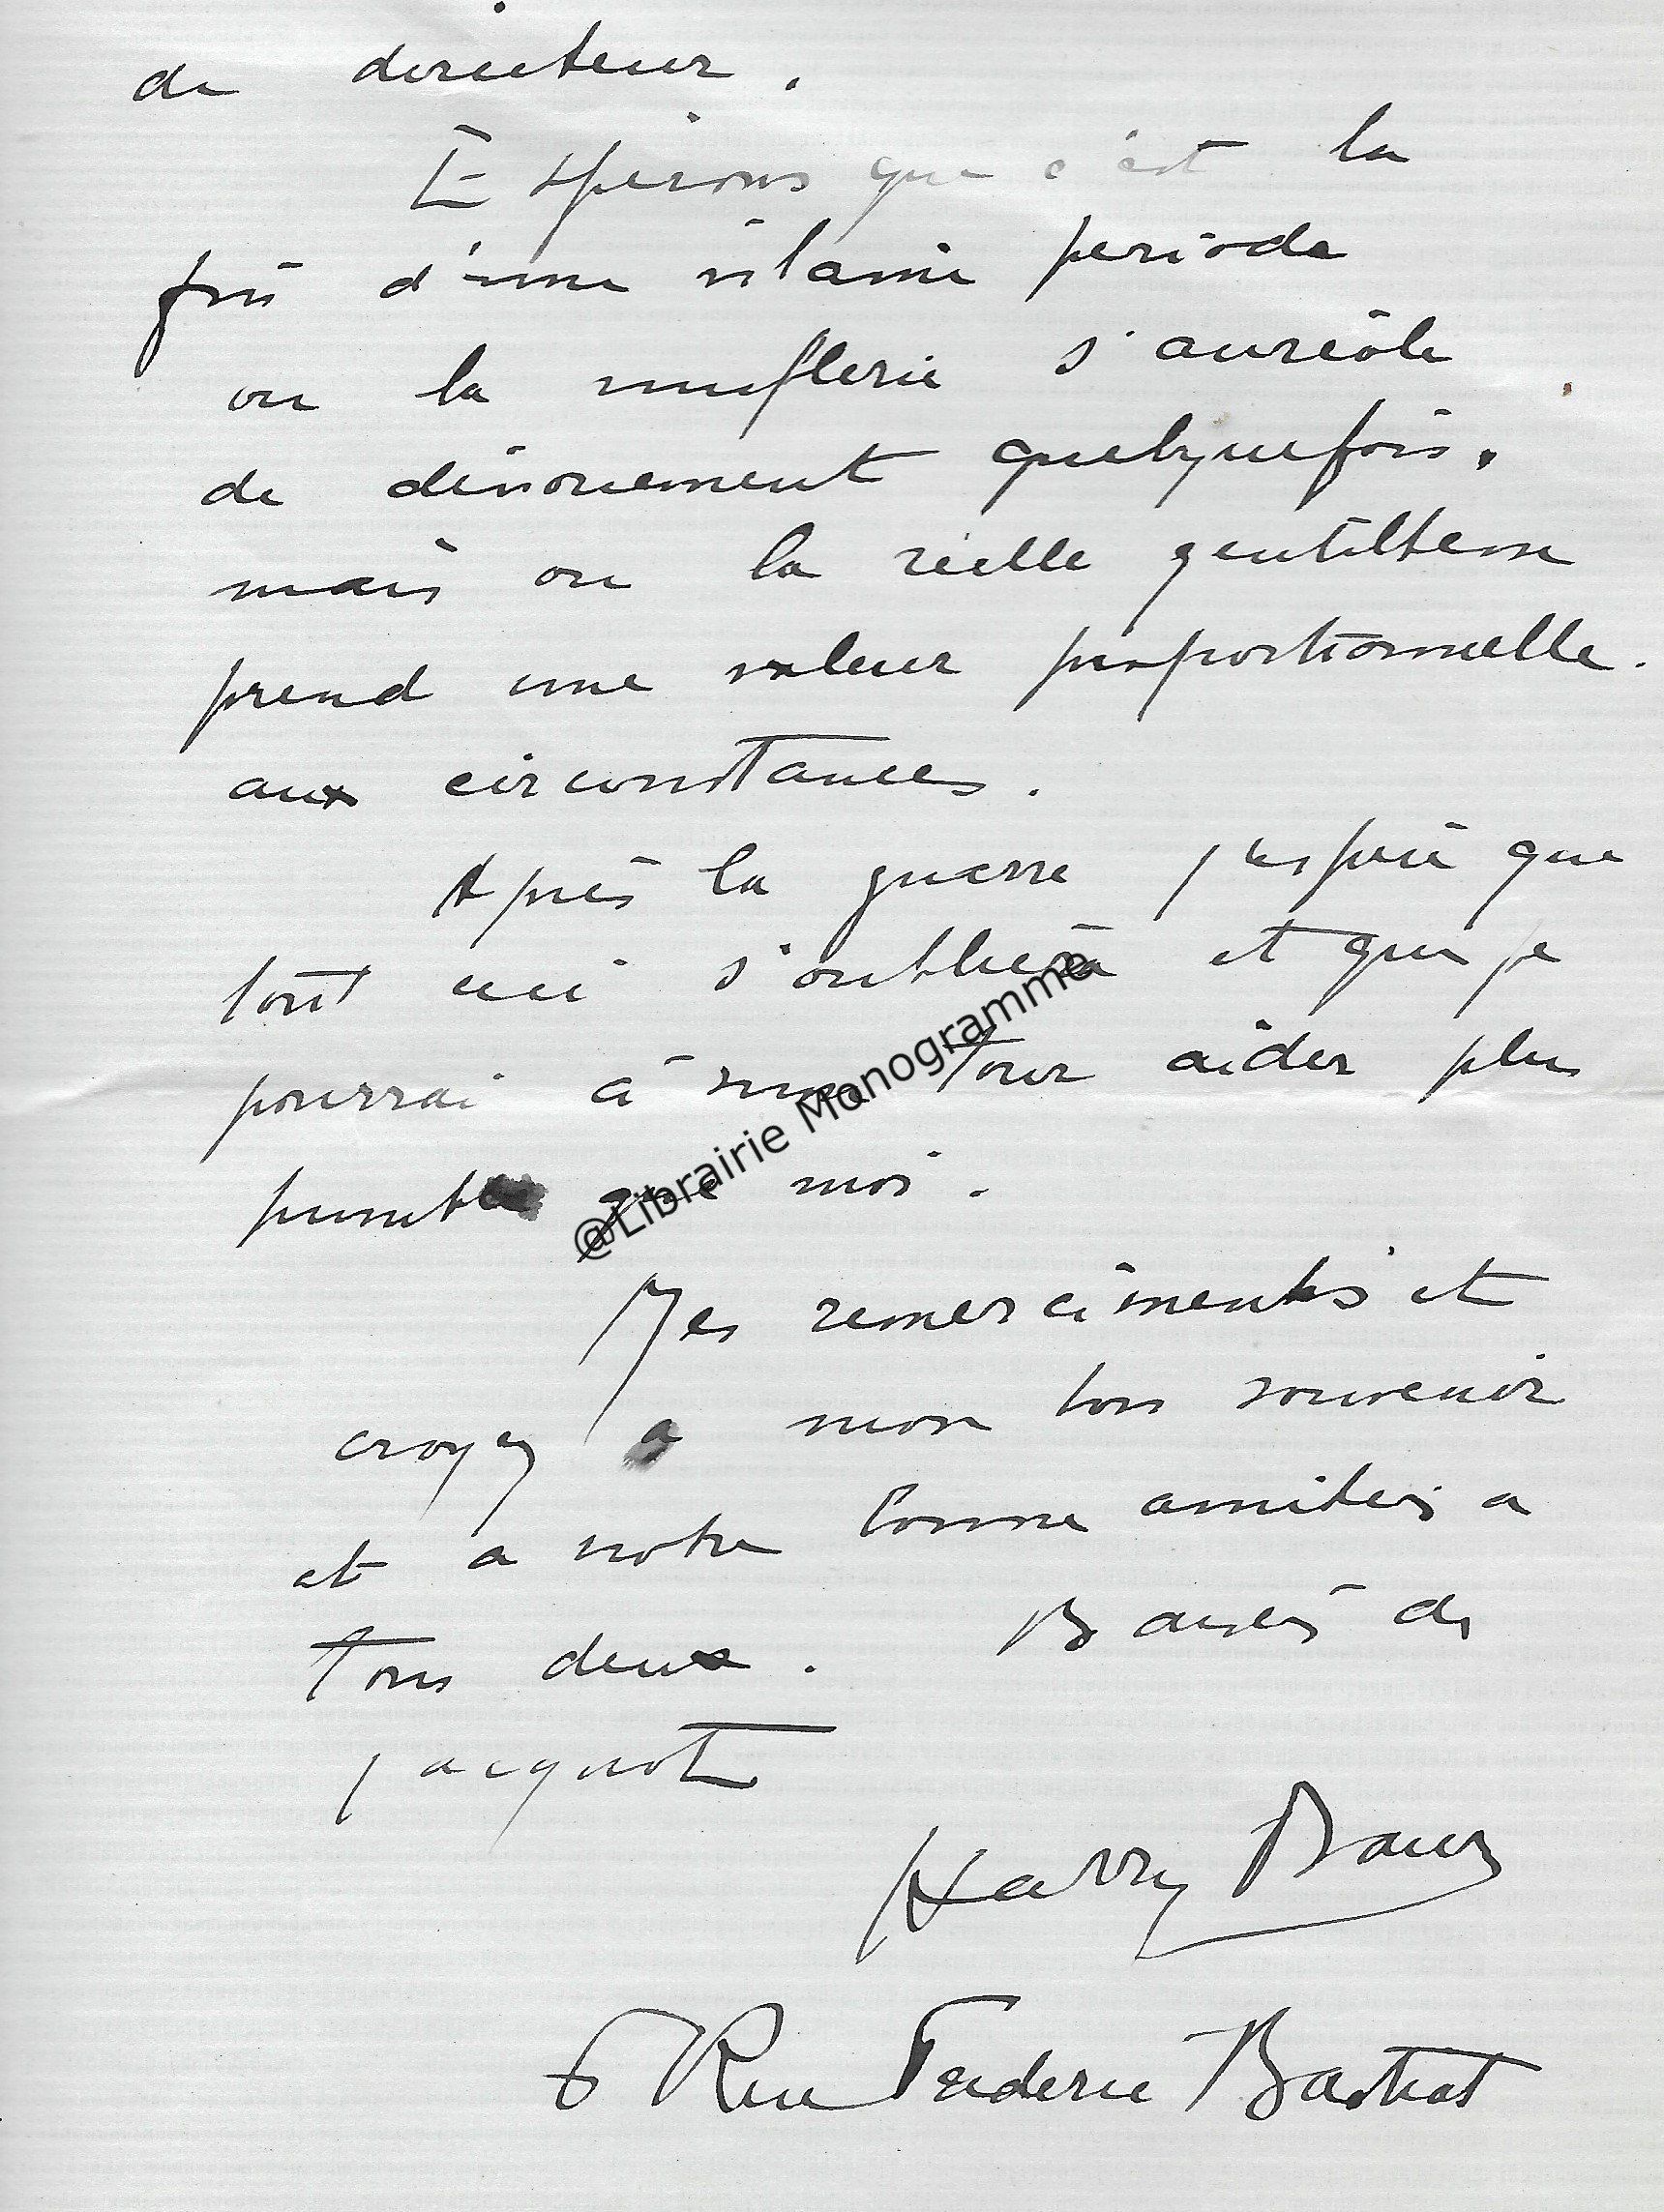 de directeur.
Espérons que c'est la
fin d'une vilaine période
ou la muflerie s'auréole
de dévouement quelquefois.
mais ou la réelle gentillesse
prend une valeur proportionnelle.
aux circonstances.
Après la guerre j'espère que
tout ceci s'oubliera et que je
pourrai à mon tour aider plus
que moi.
Mes remerciments et
croyez a mon bon souvenir
et a notre bonne amitiés a
tous deux. Baisés de
jacquot
Harry Baur
6 Rue Frederic Bastiat
@Librairie Monogramme